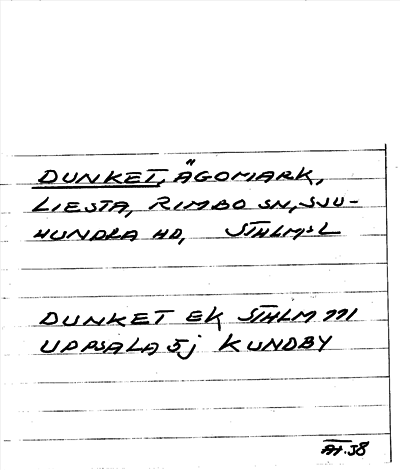 DUNKET, ÄGOMARK,
LIESTA, RIMBO SN, SJU-
HUNDRA HD, STHLMS L
DUNKET EK STHLM 991
UPPSALA 5j KUNDBY